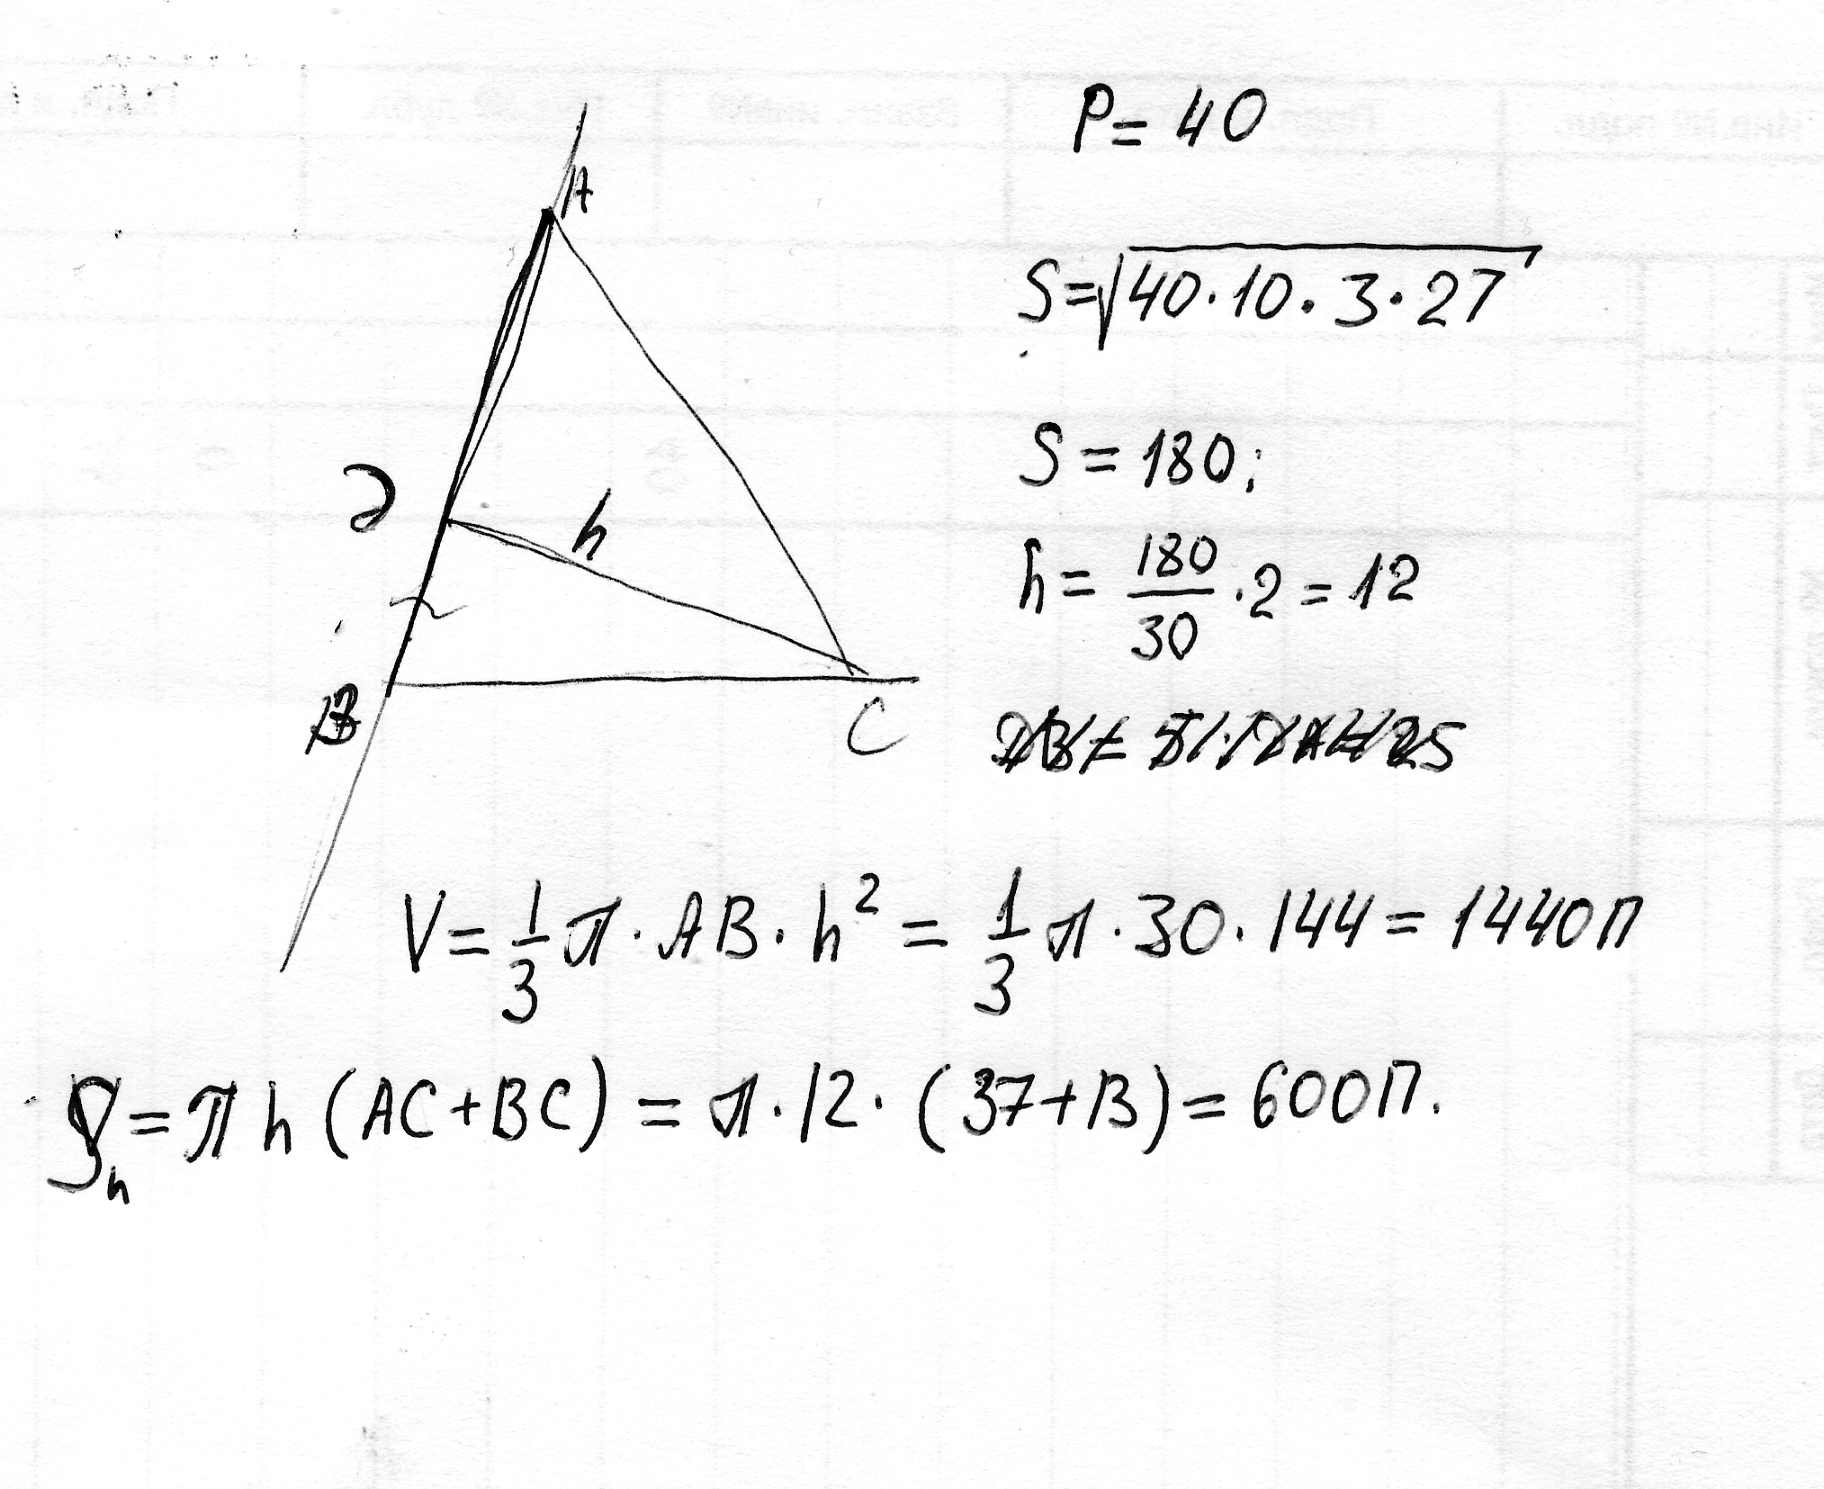 A
D
h
B
C
P = 40
S = √40·10·3·27
S = 180;
h = 180/30 · 2 = 12
V = 1/3 π · AB · h² = 1/3 π · 30 · 144 = 1440π
Sₙ = π h (AC + BC) = π · 12 · (37 + 13) = 600π.